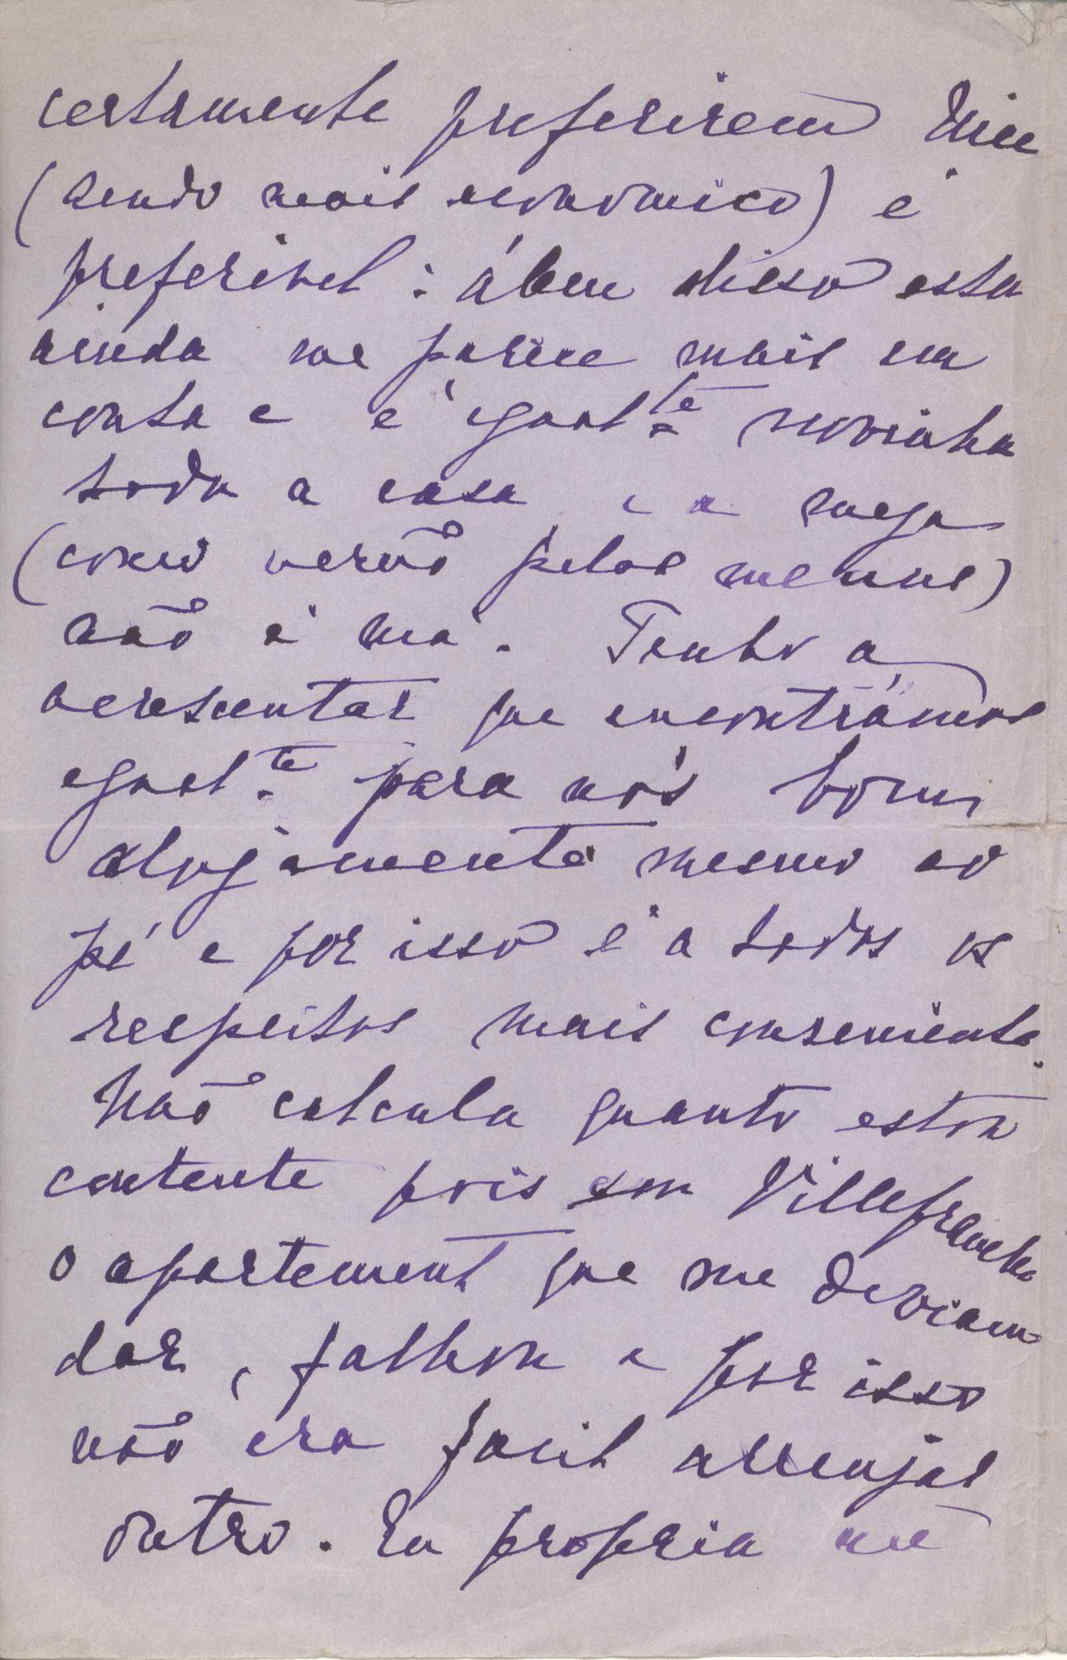 certamente preferirem Nice
(sendo mais economico) é
preferivel : álem disso esta
ainda me parece mais em
conta e é egual.te novinha
toda a casa e a meza
(como verão pelos menus)
não é má. Tenho a
acrescentar que encontrámos
egual.te para nós bom
alojamento mesmo ao
pé e por isso é a todos os
respeitos mais conveniente.
Não calcula quanto estou
contente pois em Villefranche
o apartement que me deviam
dar, falhou e por isso
não era facil arranjar
outro. Eu propria